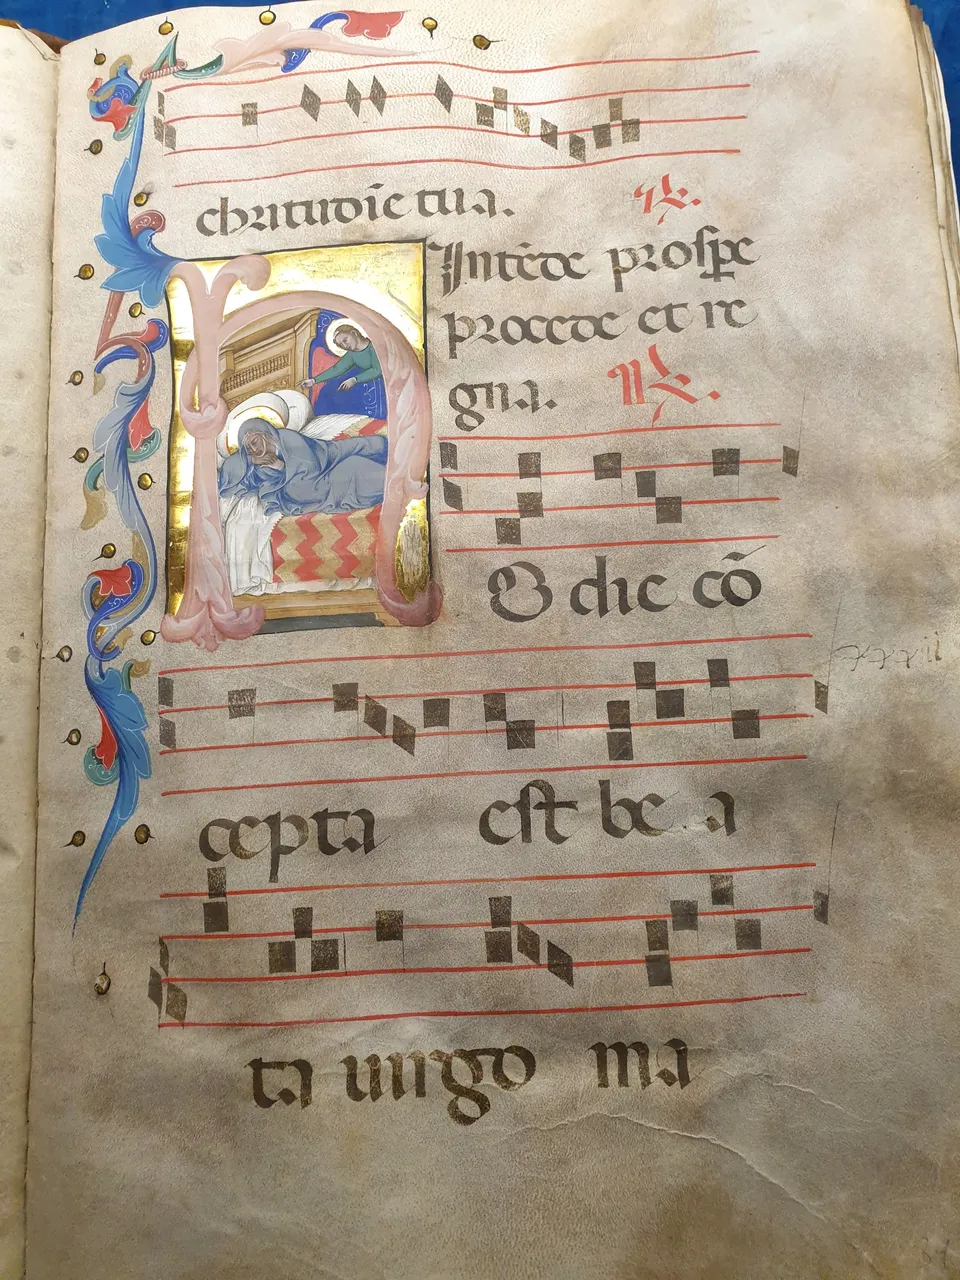 chritudīe tua. ℟.
Intēde prosꝑe
procede et re
gna. ℟.
HO die cō
cepta est be a
ta uirgo ma